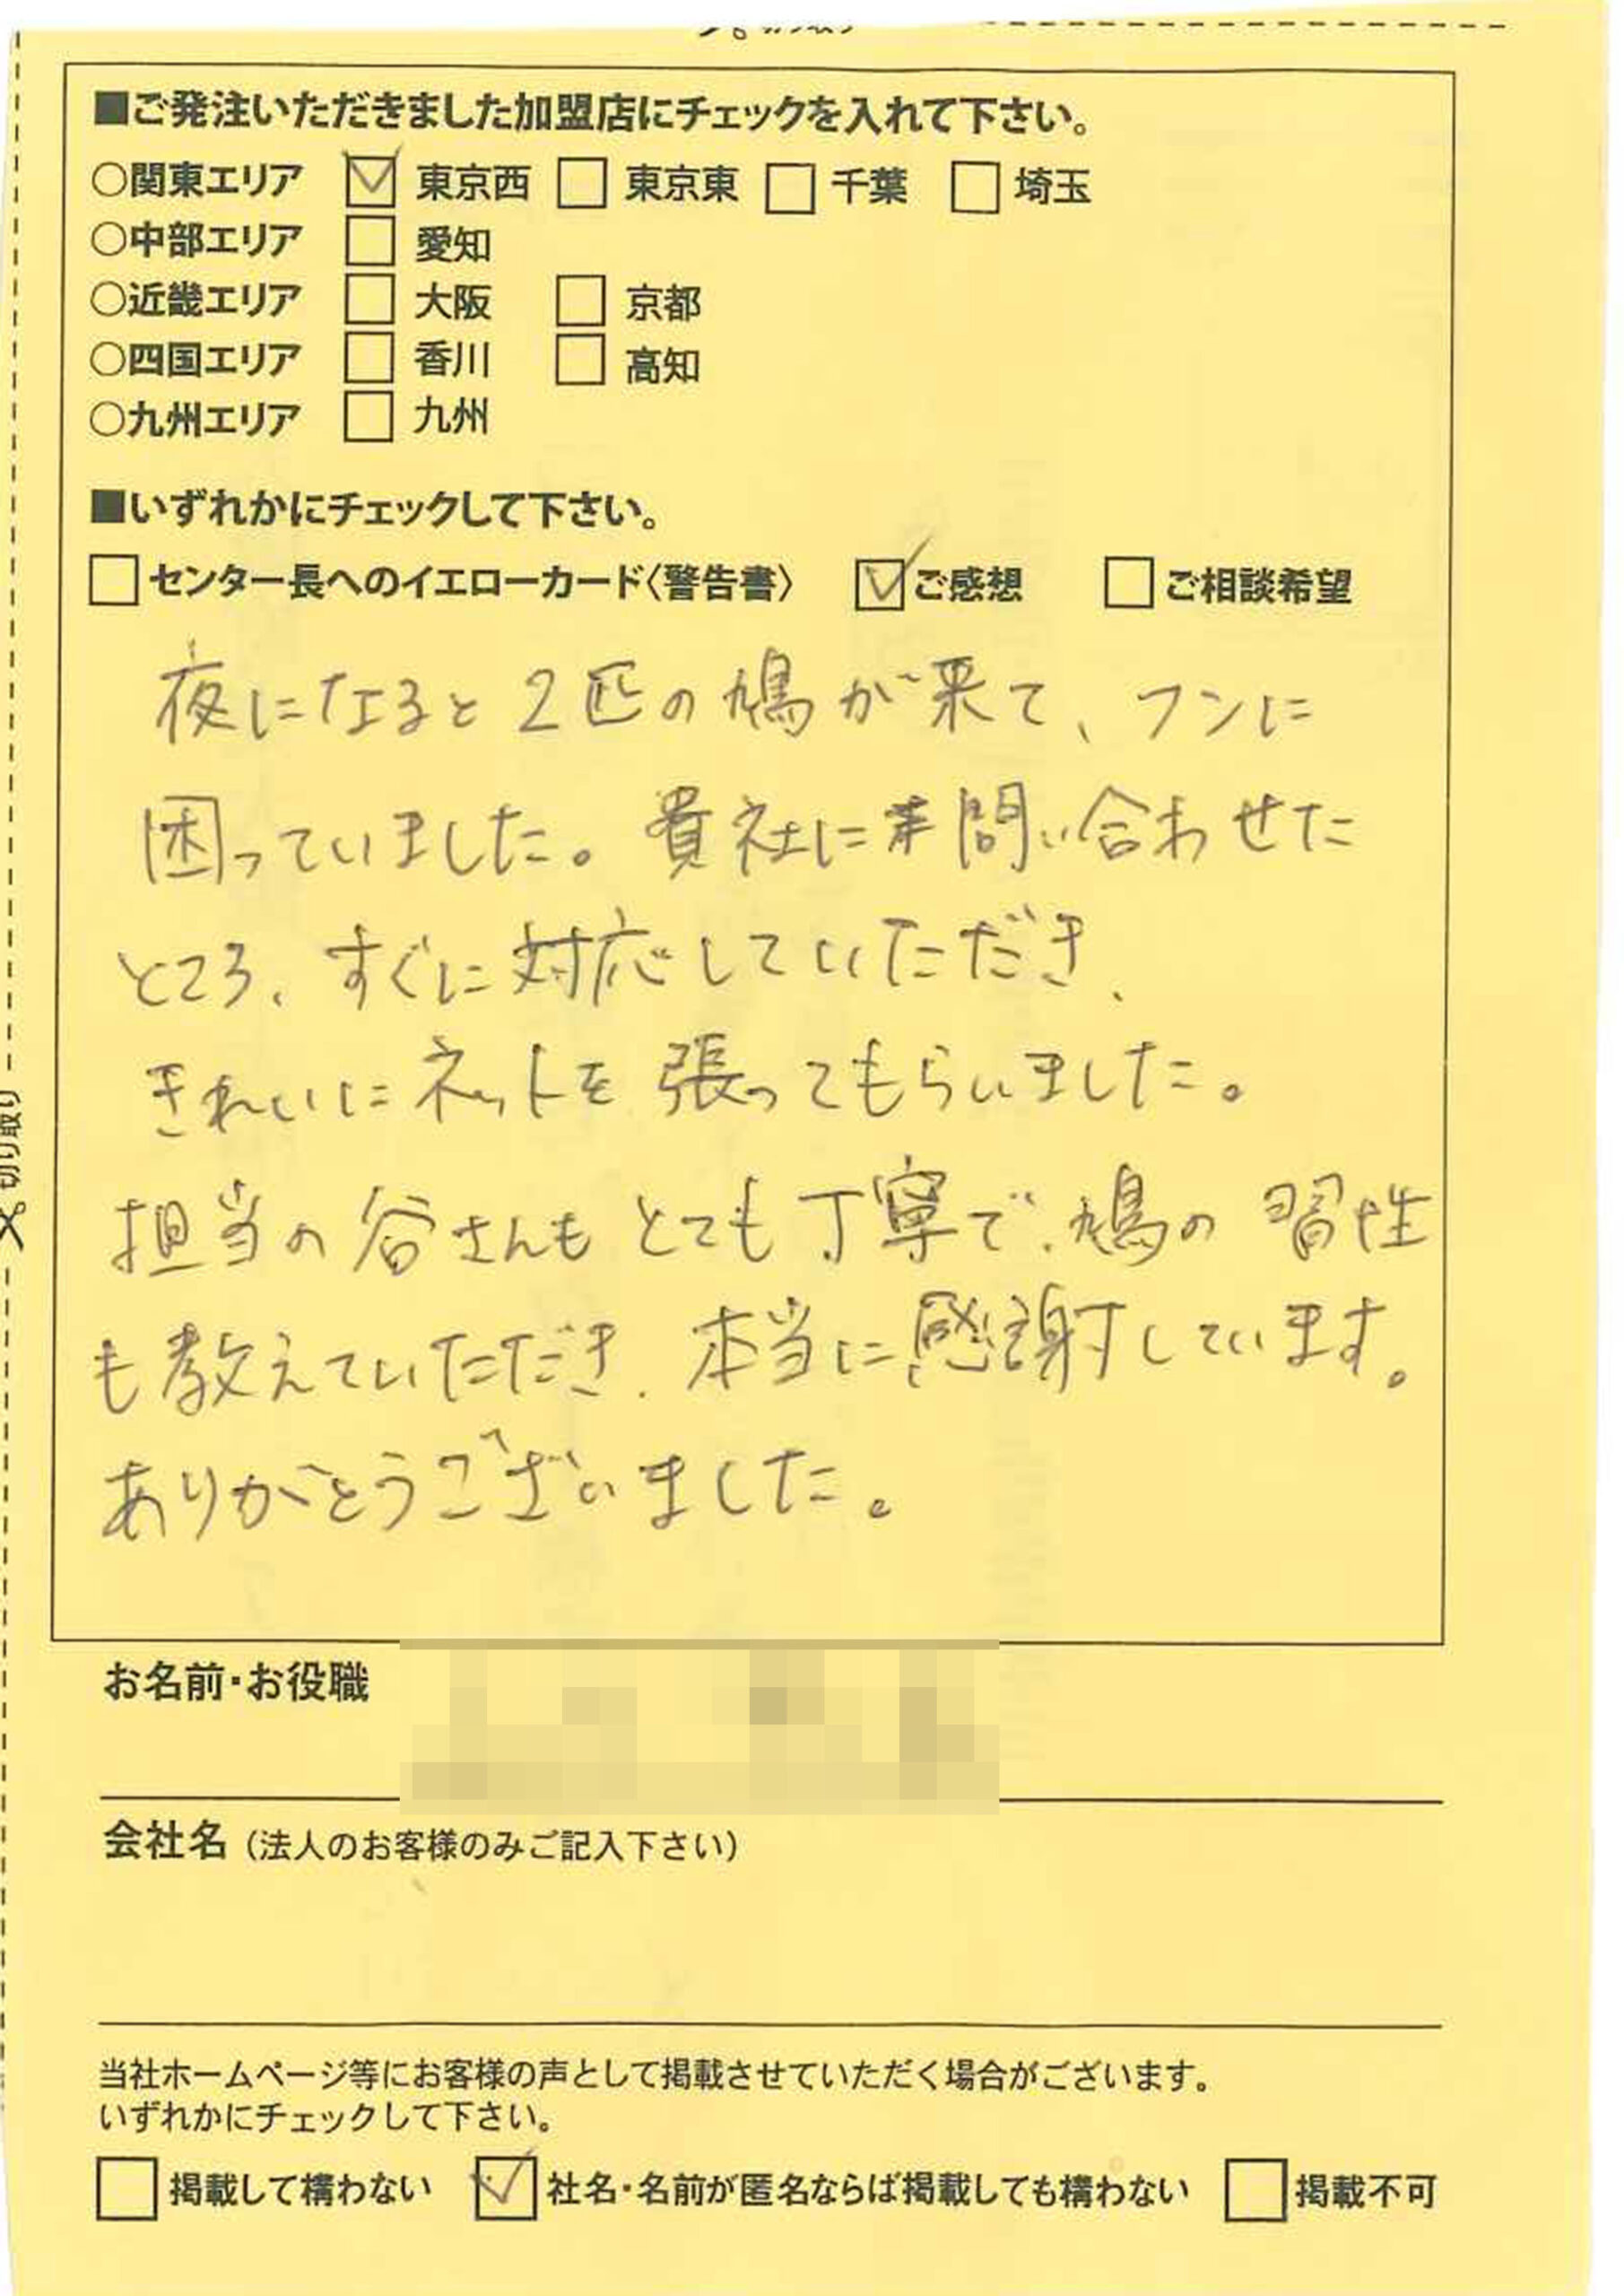 ■ご発注いただきました加盟店にチェックを入れて下さい。
○関東エリア ☑ 東京西 □ 東京東 □ 千葉 □ 埼玉
○中部エリア □ 愛知
○近畿エリア □ 大阪 □ 京都
○四国エリア □ 香川 □ 高知
○九州エリア □ 九州
■いずれかにチェックして下さい。
□ センター長へのイエローカード〈警告書〉 ☑ ご感想 □ ご相談希望
夜になると2匹の鳩が来て、フンに
困っていました。貴社に問い合わせた
ところ、すぐに対応していただき、
きれいにネットを張ってもらいました。
担当の谷さんもとても丁寧で、鳩の習性
も教えていただき、本当に感謝しています。
ありがとうございました。
お名前・お役職
会社名（法人のお客様のみご記入下さい）
当社ホームページ等にお客様の声として掲載させていただく場合がございます。
いずれかにチェックして下さい。
□ 掲載して構わない ☑ 社名・名前が匿名ならば掲載しても構わない □ 掲載不可
切り取り